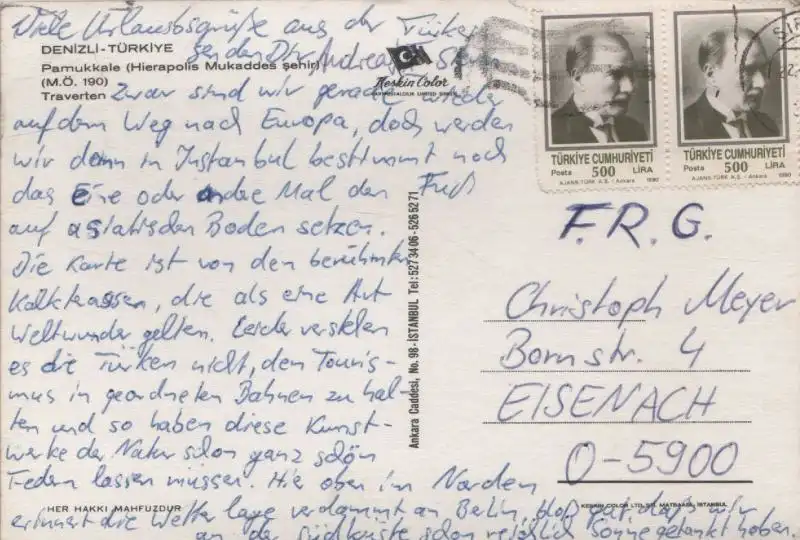 Viele Urlaubsgrüße aus der Türkei
senden Dir Andreas +
DENİZLİ-TÜRKİYE
Pamukkale (Hierapolis Mukaddes şehir)
(M.Ö. 190)
Traverten
Keskin Color
Zwar sind wir gerade wieder
auf dem Weg nach Europa, doch werden
wir dann in Istanbul bestimmt noch
das Eine oder andre Mal den Fuß
auf asiatischen Boden setzen.
Die Karte ist von den berühmten
Kalkterassen, die als eine Art
Weltwunder gelten. Leider verstehen
es die Türken nicht, den Touris-
mus in geordneten Bahnen zu hal-
ten und so haben diese Kunst-
werke der Natur schon ganz schön
Federn lassen müssen. Hier oben im Norden
erinnert die Wetterlage verdammt an Berlin, bloß gut daß wir
an der Südküste schon reichlich Sonne getankt haben.
HER HAKKI MAHFUZDUR
Ankara Caddesi, No. 98-İSTANBUL Tel: 527 34 06-526 52 71
KESKİN COLOR LTD. ŞTİ. MATBAASI, İSTANBUL
TÜRKİYE CUMHURİYETİ
Posta 500 LİRA
AJANS-TÜRK A.Ş. / Ankara 1990
TÜRKİYE CUMHURİYETİ
Posta 500 LİRA
AJANS-TÜRK A.Ş. / Ankara 1990
F.R.G.
Christoph Meyer
Bornstr. 4
EISENACH
O-5900